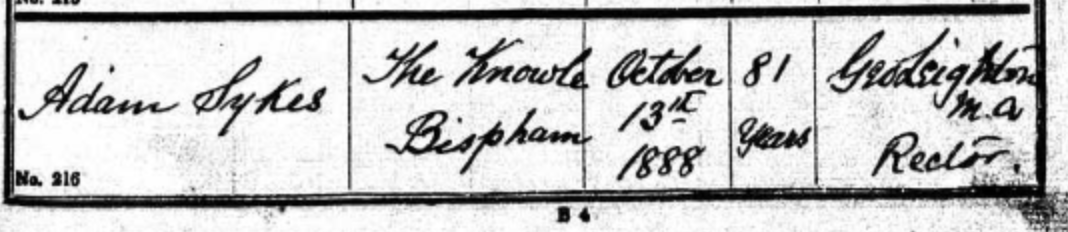 Adam Sykes
The Knowle
Bispham
October
13th
1888
81
Years
Geo Leighton
M.A
Rector.
No. 216
B 4